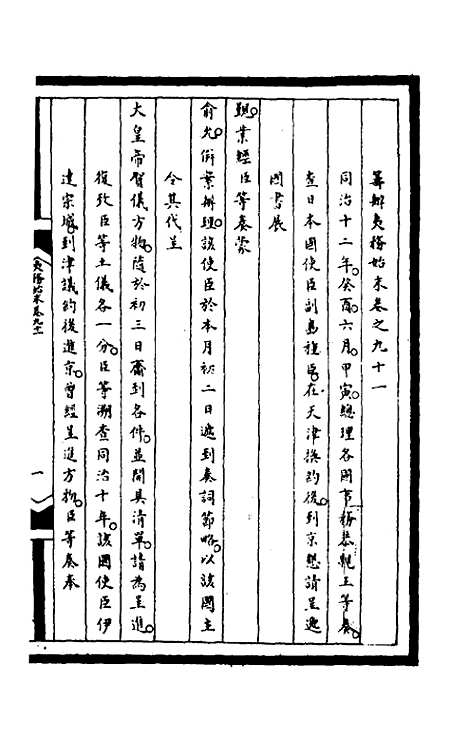 籌辦夷務始末卷之九十一
同治十二年。癸酉。六月。甲寅。總理各國事務恭親王等奏。
查日本國使臣副島種臣。在天津換約後。到京懇請呈遞
國書展
覲。業經臣等奏蒙
俞允。併案辦理。該使臣於本月初二日遞到奏詞節略。以該國主
令其代呈
大皇帝賀儀方物。隨於初三日齎到各件。並開具清單。請為呈進。
復致臣等土儀各一分。臣等溯查同治十年。該國使臣伊
達宗城。到津議約後進京。曾經呈進方物。臣等奏奉
夷務始末卷九十一
一